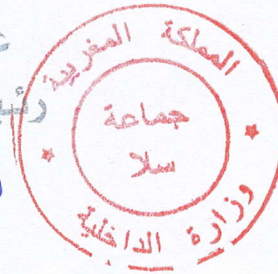 المملكة المغربية
جماعة
سلا
وزارة الداخلية